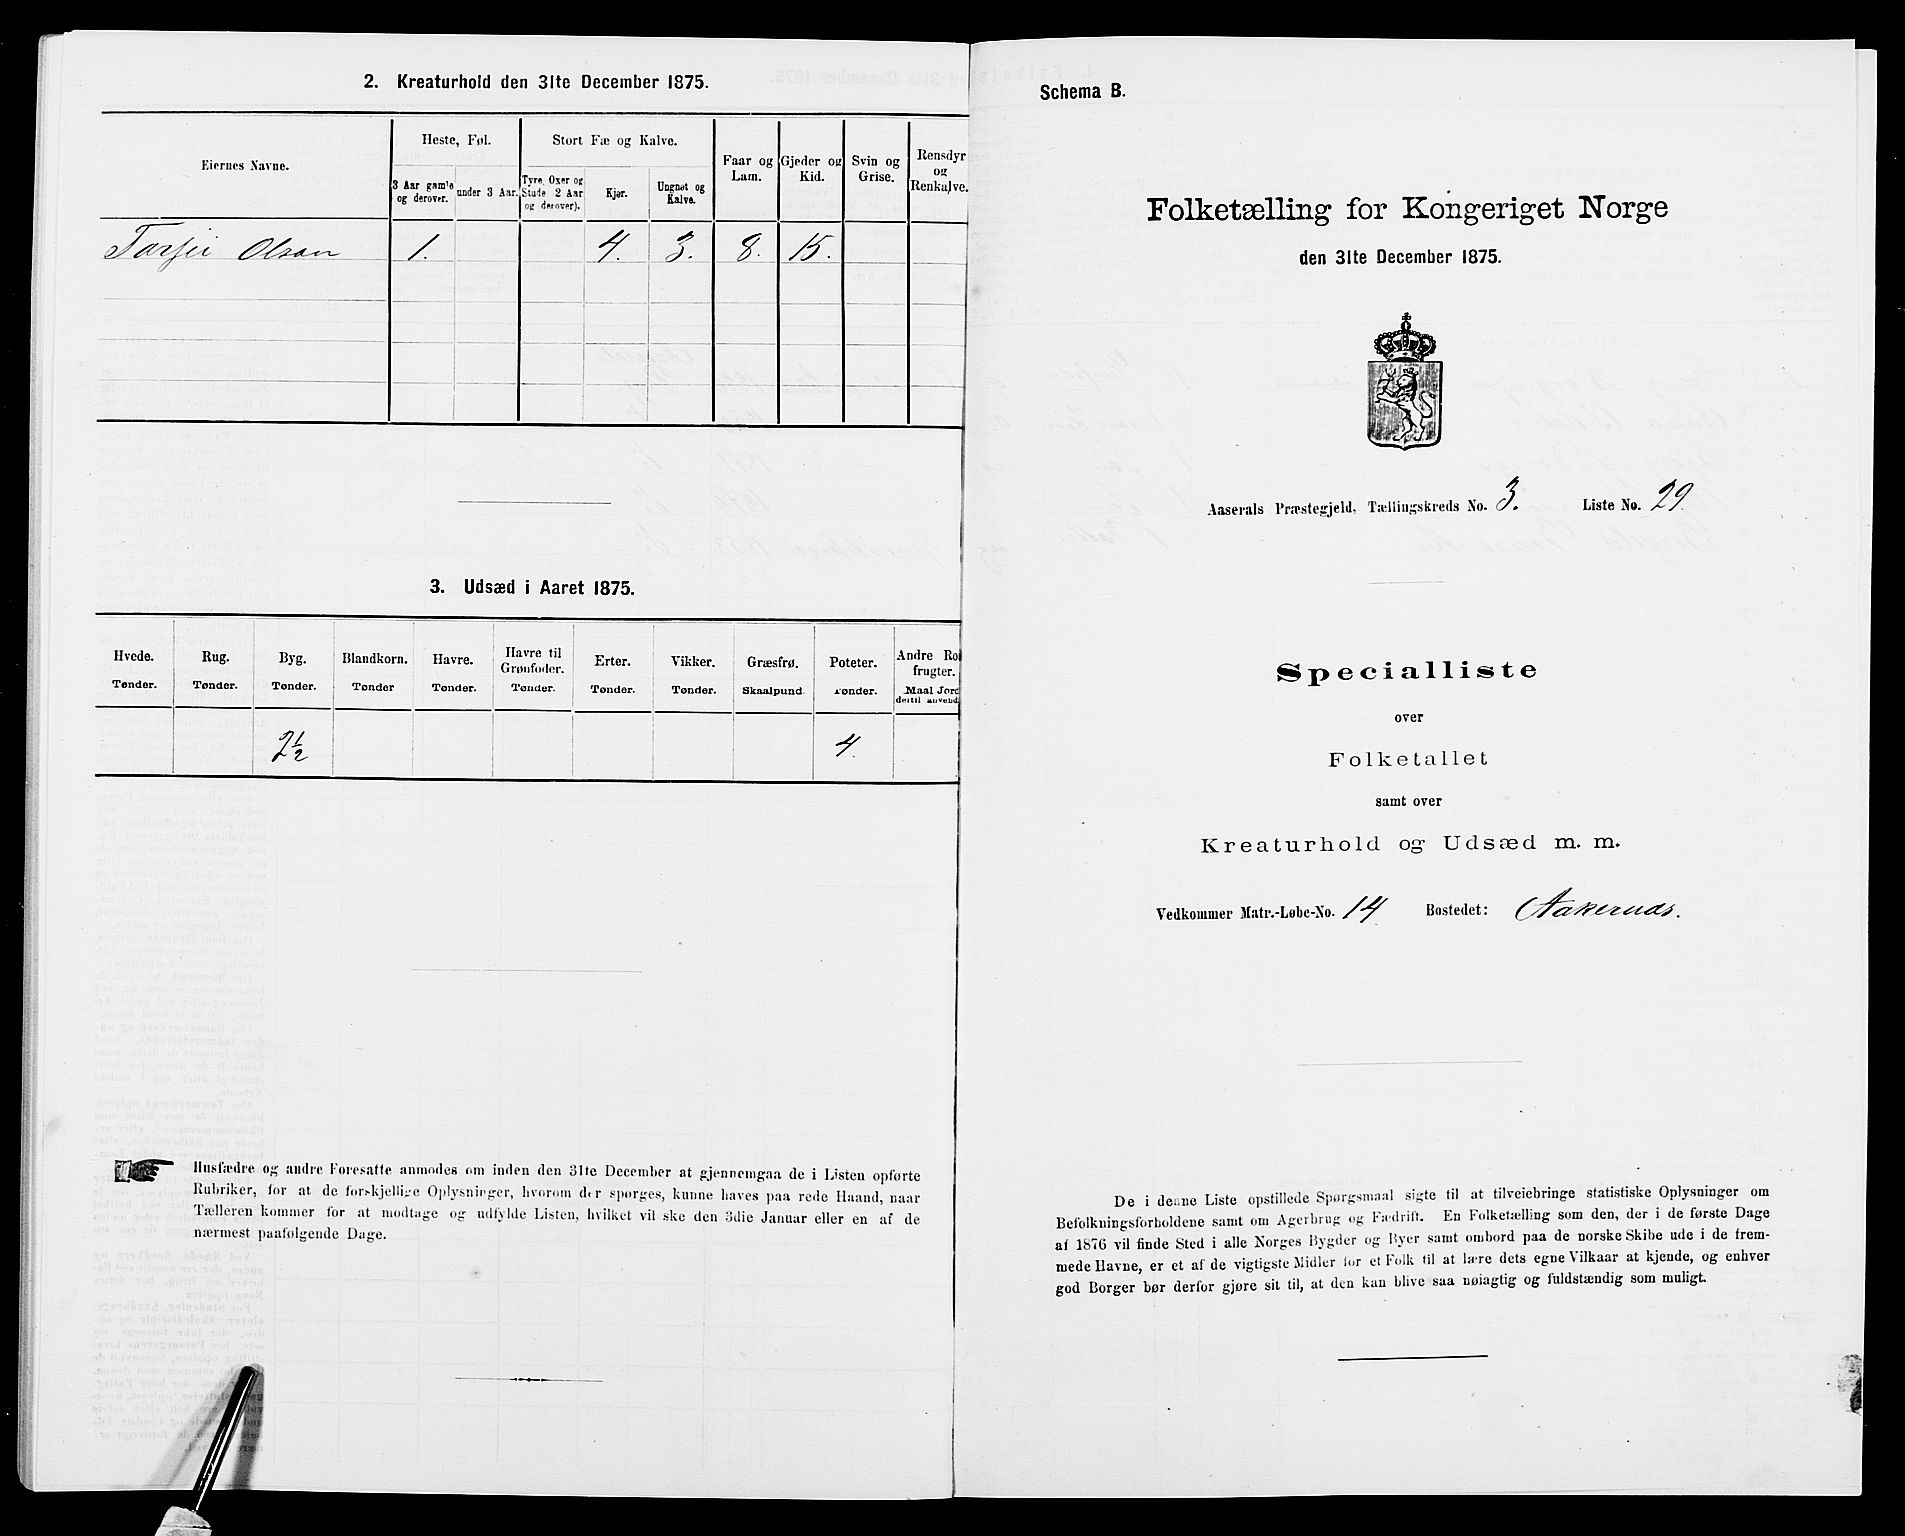 2. Kreaturhold den 31te December 1875.
Eiernes Navne.
Heste, Føl.
Stort Fæ og Kalve.
Faar og
Lam.
Gjeder og
Kid.
Svin og
Grise.
Rensdyr
og
Renkalve.
3 Aar gamle
og derover.
under 3 Aar.
Tyre, Oxer og
Stude 2 Aar
og derover).
Kjør.
Ungnøt og
Kalve.
Torjei Olsen 1. 4. 3. 8. 15.
3. Udsæd i Aaret 1875.
Hvede. Rug. Byg. Blandkorn. Havre. Havre til Grønfoder. Erter. Vikker. Græsfrø. Poteter. Andre Ro frugter.
Tønder. Tønder. Tønder. Tønder Tønder. Tønder. Tønder. Tønder. Skaalpund. Tønder. Maal Jord dertil anvend
2½ 4.
Husfædre og andre Foresatte anmodes om inden den 31te December at gjennemgaa de i Listen opførte
Rubriker, for at de forskjellige Oplysninger, hvorom der spørges, kunne haves paa rede Haand, naar
Tælleren kommer for at modtage og udfylde Listen, hvilket vil ske den 3die Januar eller en af de
nærmest paafølgende Dage.
Schema B.
Folketælling for Kongeriget Norge
den 31te December 1875.
Aaserals Præstegjeld, Tællingskreds No. 3. Liste No. 29.
Specialliste
over
Folketallet
samt over
Kreaturhold og Udsæd m. m.
Vedkommer Matr.-Løbe-No. 14 Bostedet: Aakernds.
De i denne Liste opstillede Spørgsmaal sigte til at tilveiebringe statistiske Oplysninger om
Befolkningsforholdene samt om Agerbrug og Fædrift. En Folketælling som den, der i de første Dage
af 1876 vil finde Sted i alle Norges Bygder og Byer samt ombord paa de norske Skibe ude i de frem-
mede Havne, er et af de vigtigste Midler for et Folk til at lære dets egne Vilkaar at kjende, og enhver
god Borger bør derfor gjøre sit til, at den kan blive saa nøiagtig og fuldstændig som muligt.